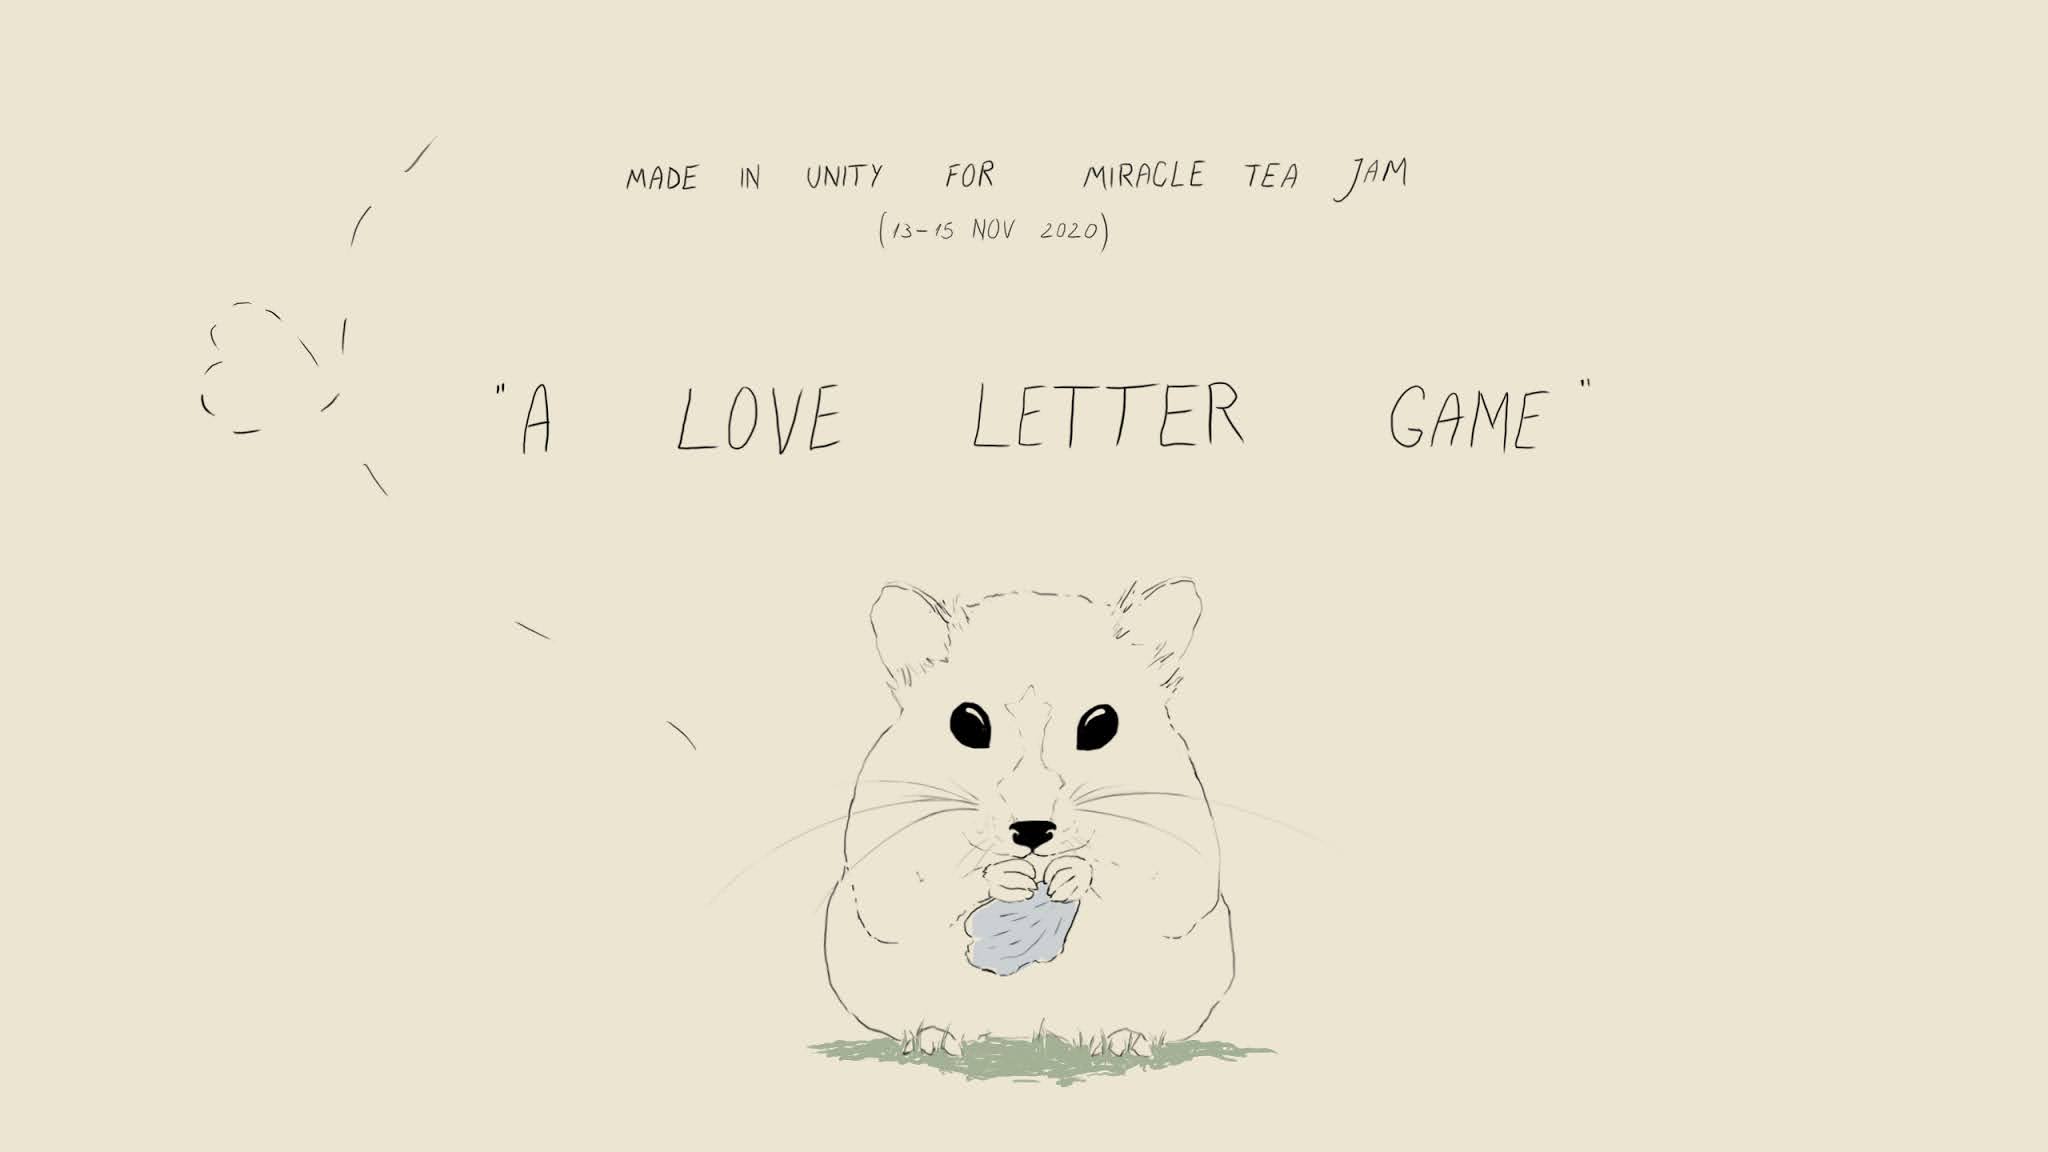 MADE IN UNITY FOR MIRACLE TEA JAM
(13-15 NOV 2020)
"A LOVE LETTER GAME"